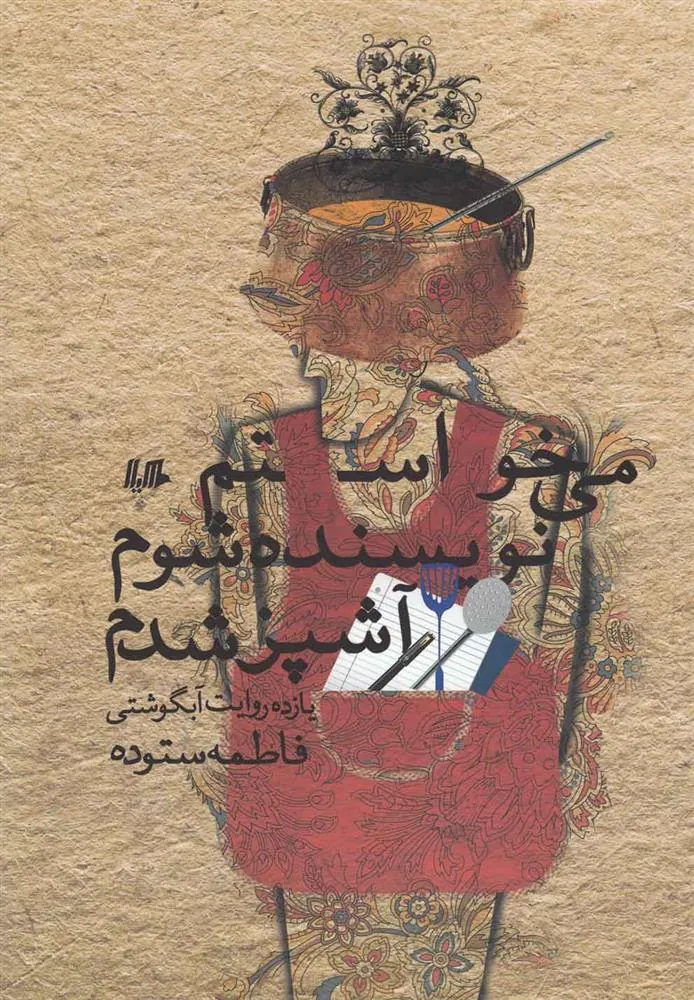 می‌خواستم
نویسنده شوم
آشپز شدم
یازده روایت آبگوشتی
فاطمه ستوده